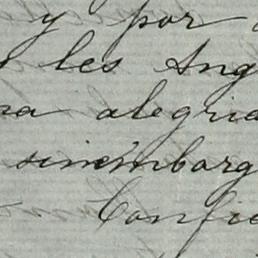 y por
les Ang
na alegria
sinembarg
Confie